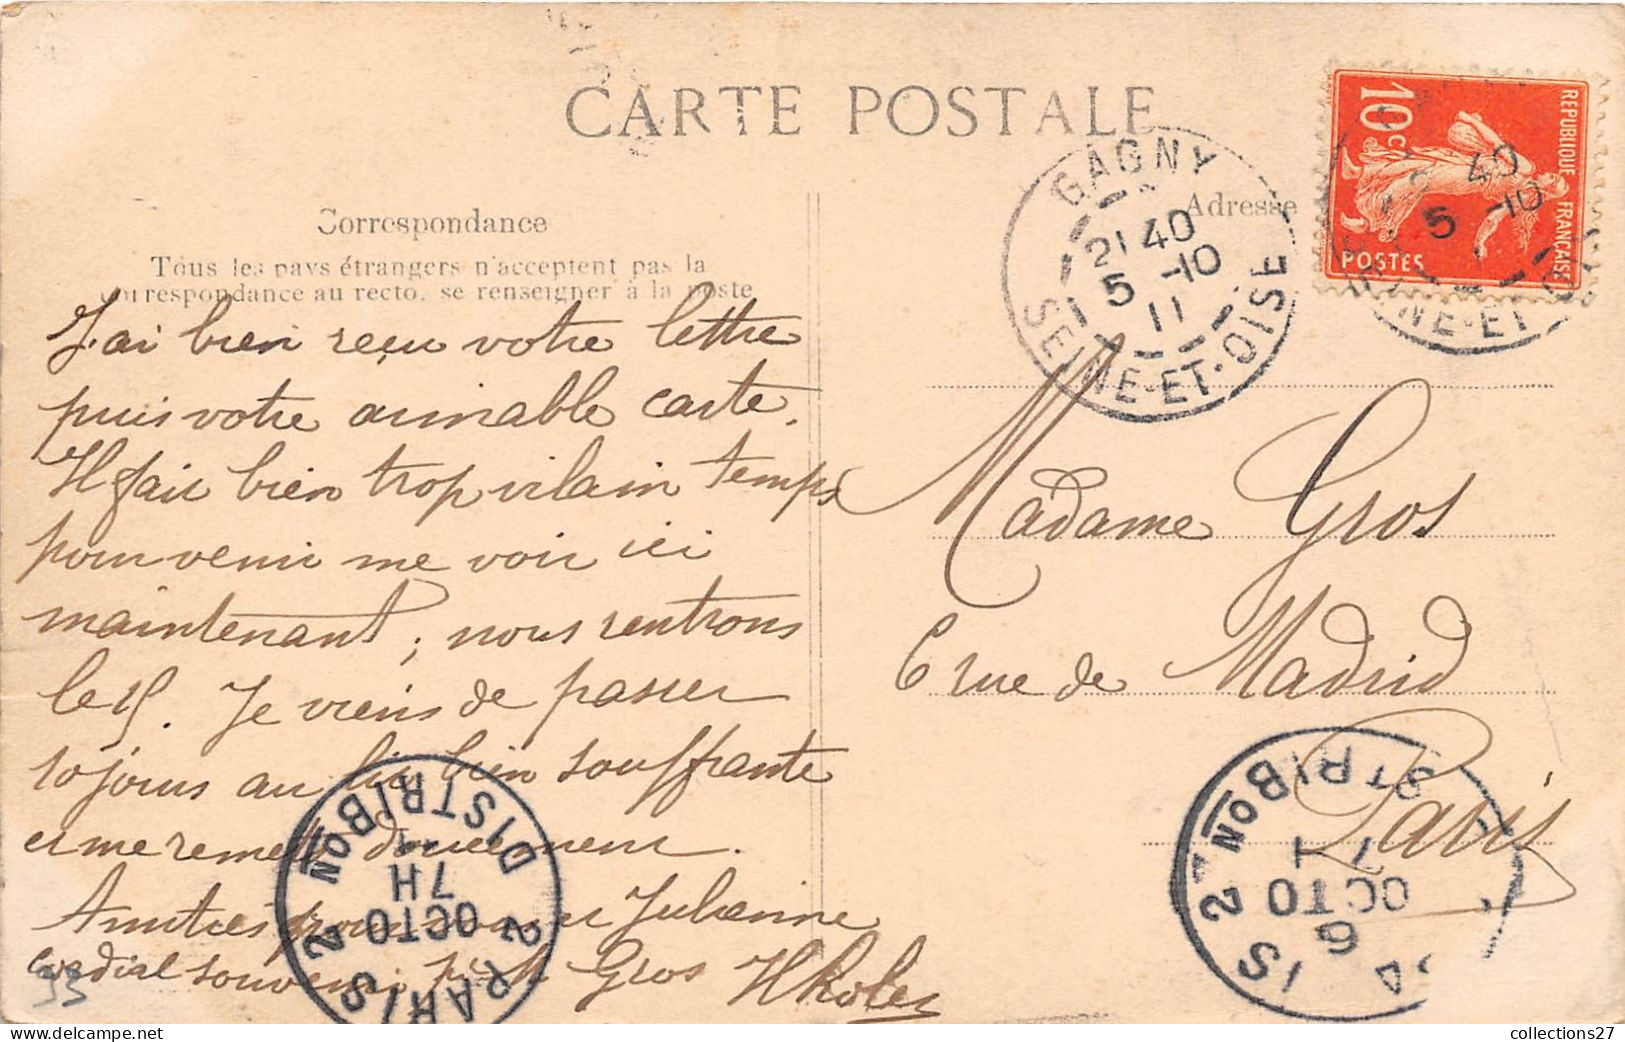 CARTE POSTALE
Correspondance
Tous les pays étrangers n'acceptent pas la
correspondance au recto, se renseigner à la poste
J'ai bien reçu votre lettre
puis votre aimable carte.
Il fait bien trop vilain temps
pour venir me voir ici
maintenant ; nous rentrons
le 15. Je viens de passer
10 jours au lit bien souffrante
et me remets doucement.
Amitiés pour vous et Julienne
cordial souvenir M Gros
93
Adresse
Madame Gros
6 rue de Madrid
Paris
REPUBLIQUE FRANÇAISE
10c
POSTES
GAGNY
21 40
5 -10
11
SEINE-ET-OISE
40
5 -10
NE-ET
PARIS 2
DISTRIBON
7H
OCTO
2
IS 2
STRIBON
7
OCTO
6
collections27